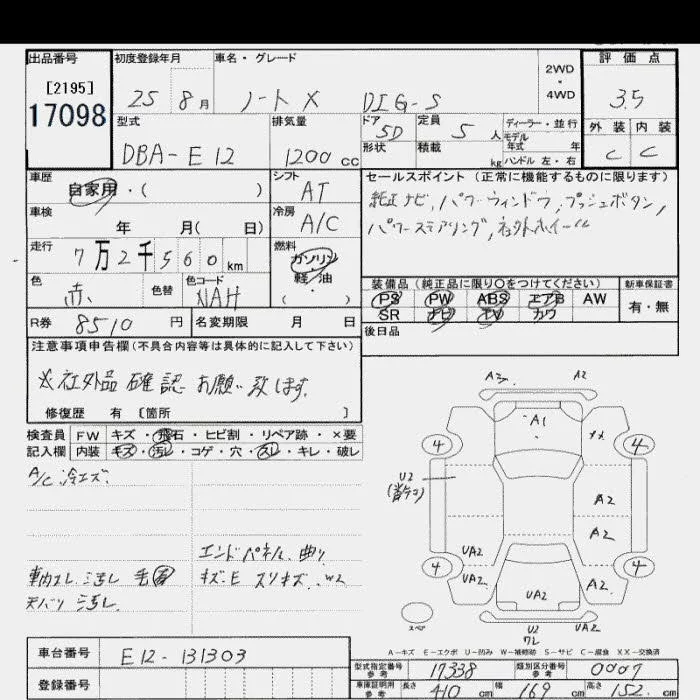 出品番号
[2195]
17098
初度登録年月
25 8月
車名・グレード
ノートX DIG-S
2WD
・
4WD
評価点
3.5
外装 内装
C C
型式
DBA-E12
排気量
1200cc
ドア
5D
形状
定員
5人
積載
kg
ディーラー・並行
モデル
年式 年
ハンドル 左・右
車歴
自家用・( )
シフト
AT
セールスポイント(正常に機能するものに限ります)
純正ナビ,パワーウィンドウ,プッシュボタン,
パワーステアリング,社外ホイール
車検
年 月( 日)
冷房
A/C
走行
7万2千560km
燃料
ガソリン
軽/油
・
( )
色
赤
色替
色コード
NAH
装備品(純正品に限り○をつけてください)
PS PW ABS エアB AW
SR ナビ TV カワ
新車保証書
有・無
R券 8510円
名変期限 月 日
後日品
注意事項申告欄(不具合内容等は具体的に記入して下さい)
※社外品確認お願い致します.
修復歴 有 [箇所 ]
検査員
記入欄
FW キズ・飛石・ヒビ割・リペア跡・×要
内装 キズ・汚レ・コゲ・穴・スレ・キレ・破レ
A/C 冷エズ.
エンドパネル 曲リ
キズ.E スリキズ. W2
車内スレ 汚レ
天バリ 汚レ.
A2
A1
XX
4
4
U2
A2
A2
UA2
4
UA2
A2
4
UA2
スペア
U2
UA2
A-キズ E-エクボ U-凹み W-補修跡 S-サビ C-腐食 XX-交換済
車台番号
E12-131303
登録番号
型式指定番号
参考
17338
類別区分番号
参考
0007
車庫証明用
参考
長さ 410cm
幅 169cm
高さ 152cm